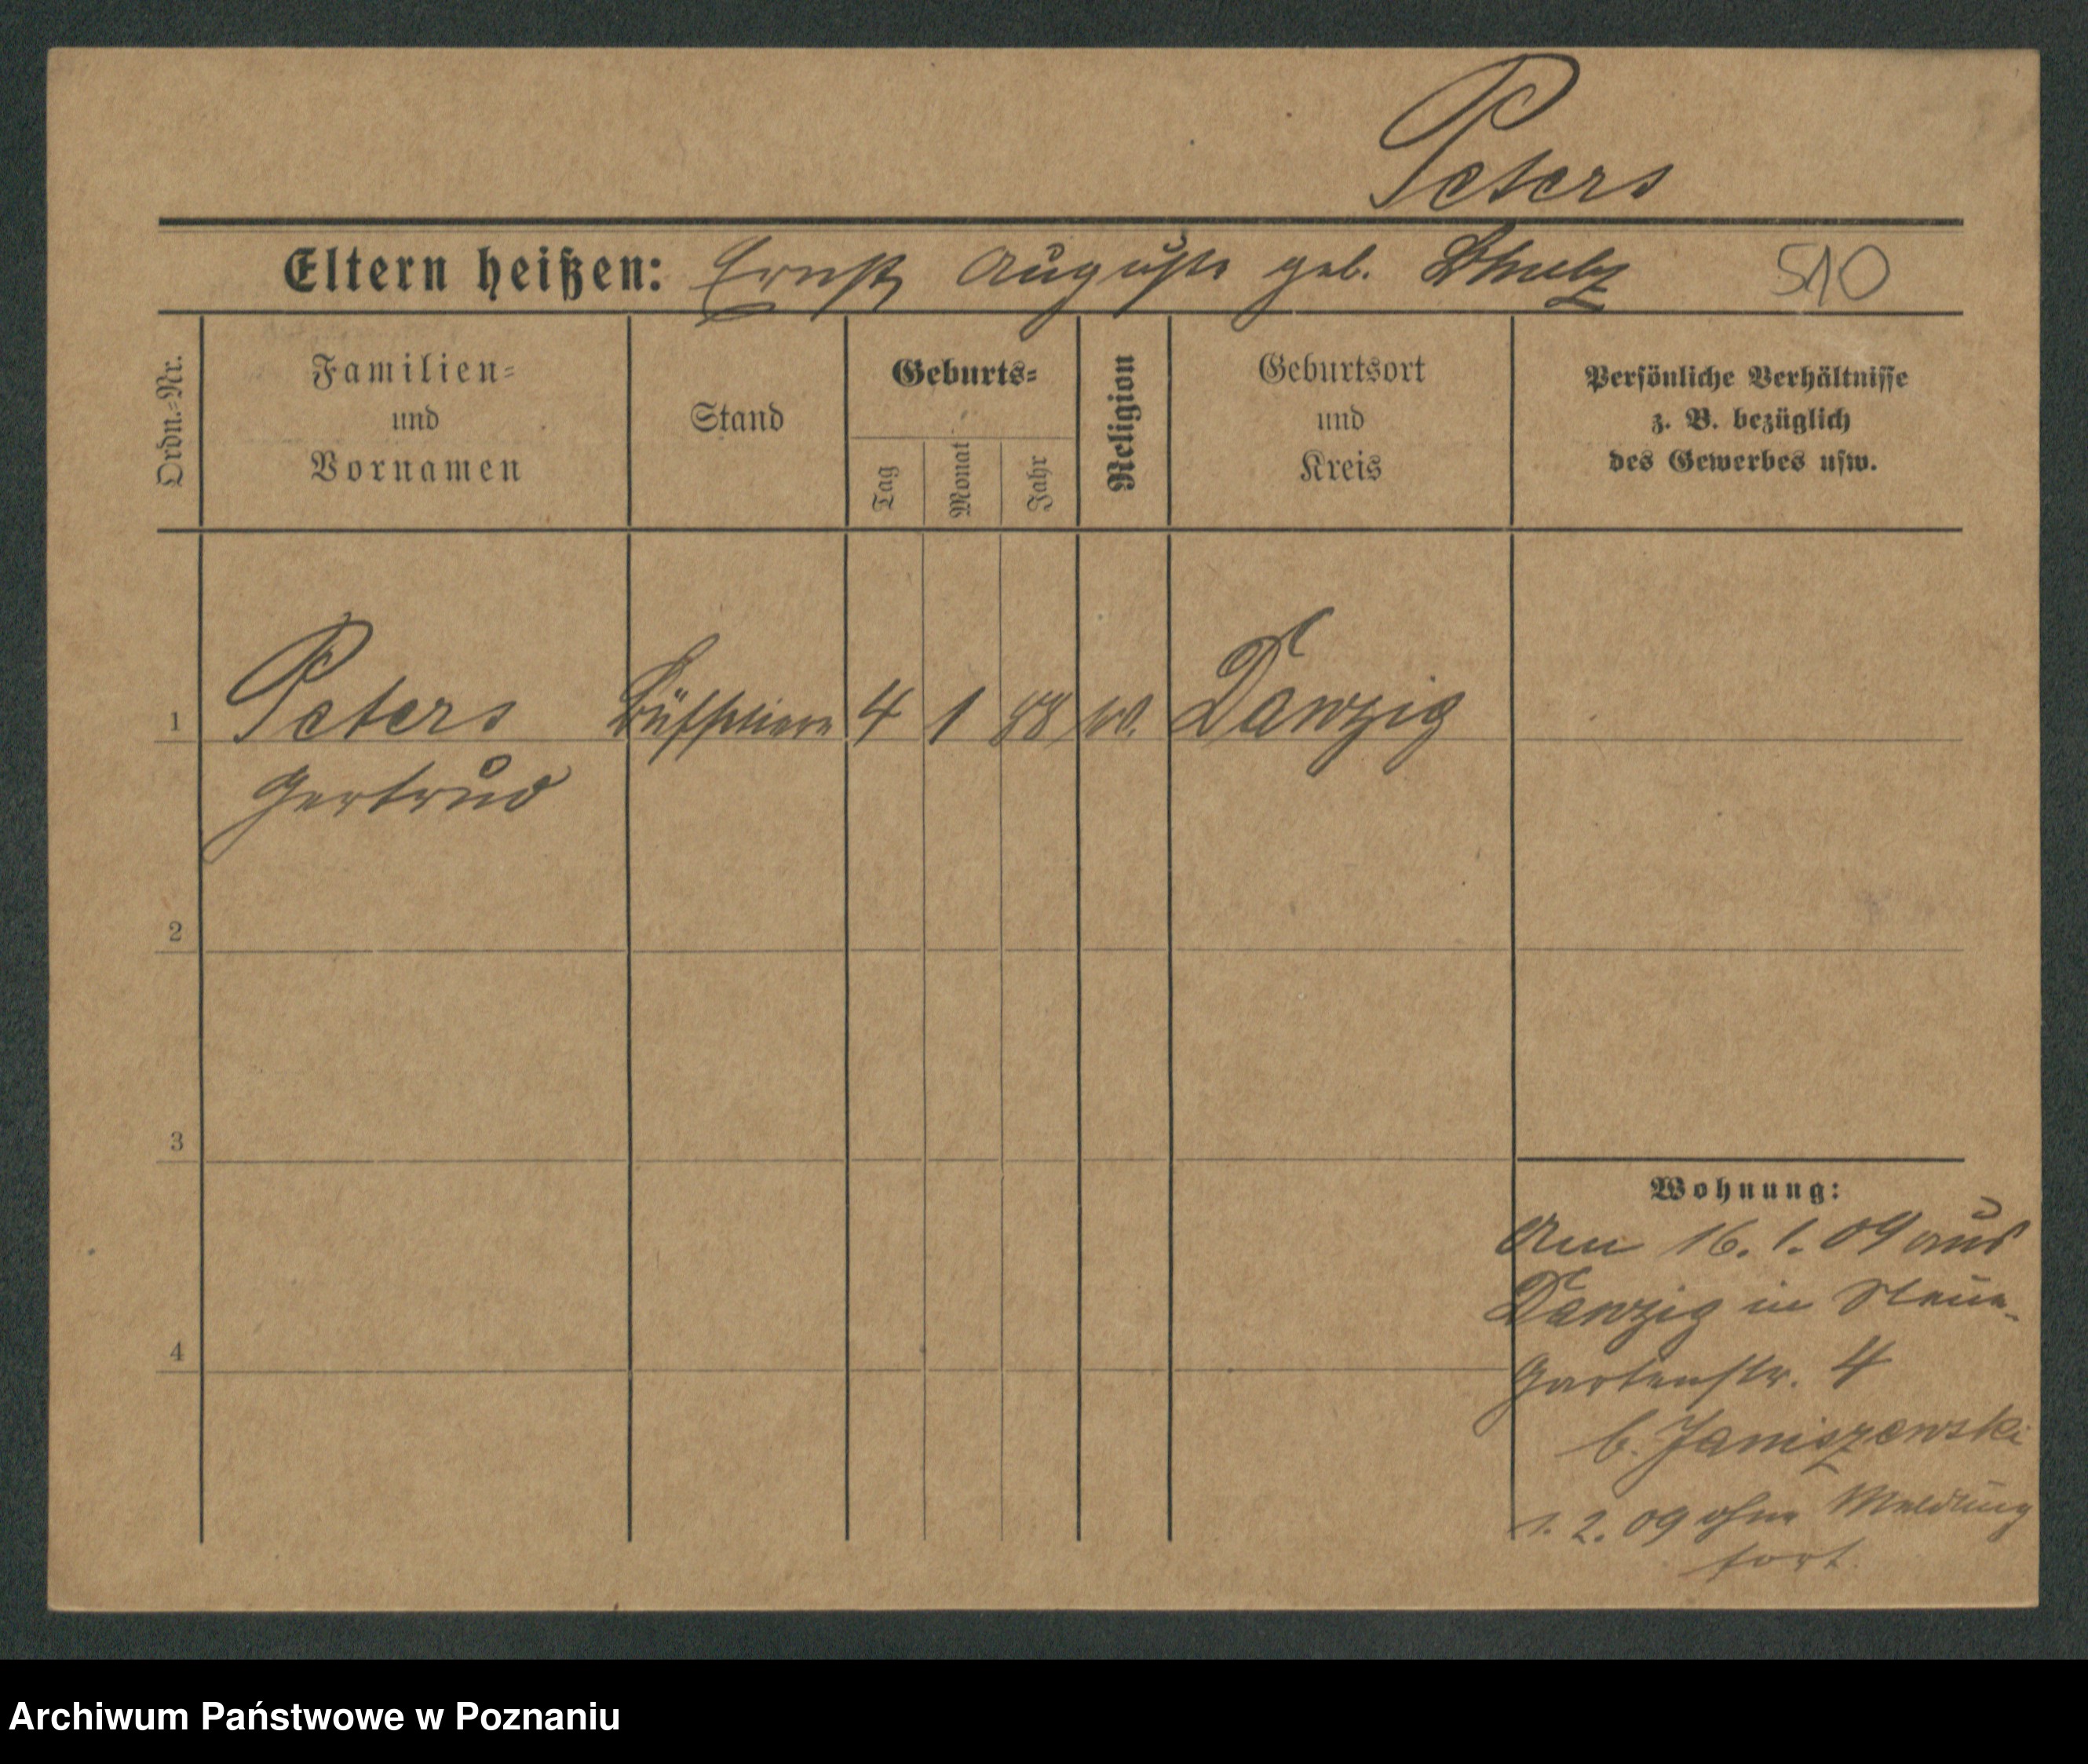 Peters
Eltern heißen: Ernst Auguste geb. Schulz 510
Ordn.=Nr.
Familien=
und
Vornamen
Stand
Geburts=
Tag
Monat
Jahr
Religion
Geburtsort
und
Kreis
Persönliche Verhältnisse
z. B. bezüglich
des Gewerbes usw.
1 Peters Büfettiere 4 1 88 Danzig
Gertrud
2
3
4
Wohnung:
Am 16. 1. 09 aus
Danzig in Neue-
Gartenstr. 4
b. Janiszewski
1. 2. 09 ohne Meldung
fort.
Archiwum Państwowe w Poznaniu